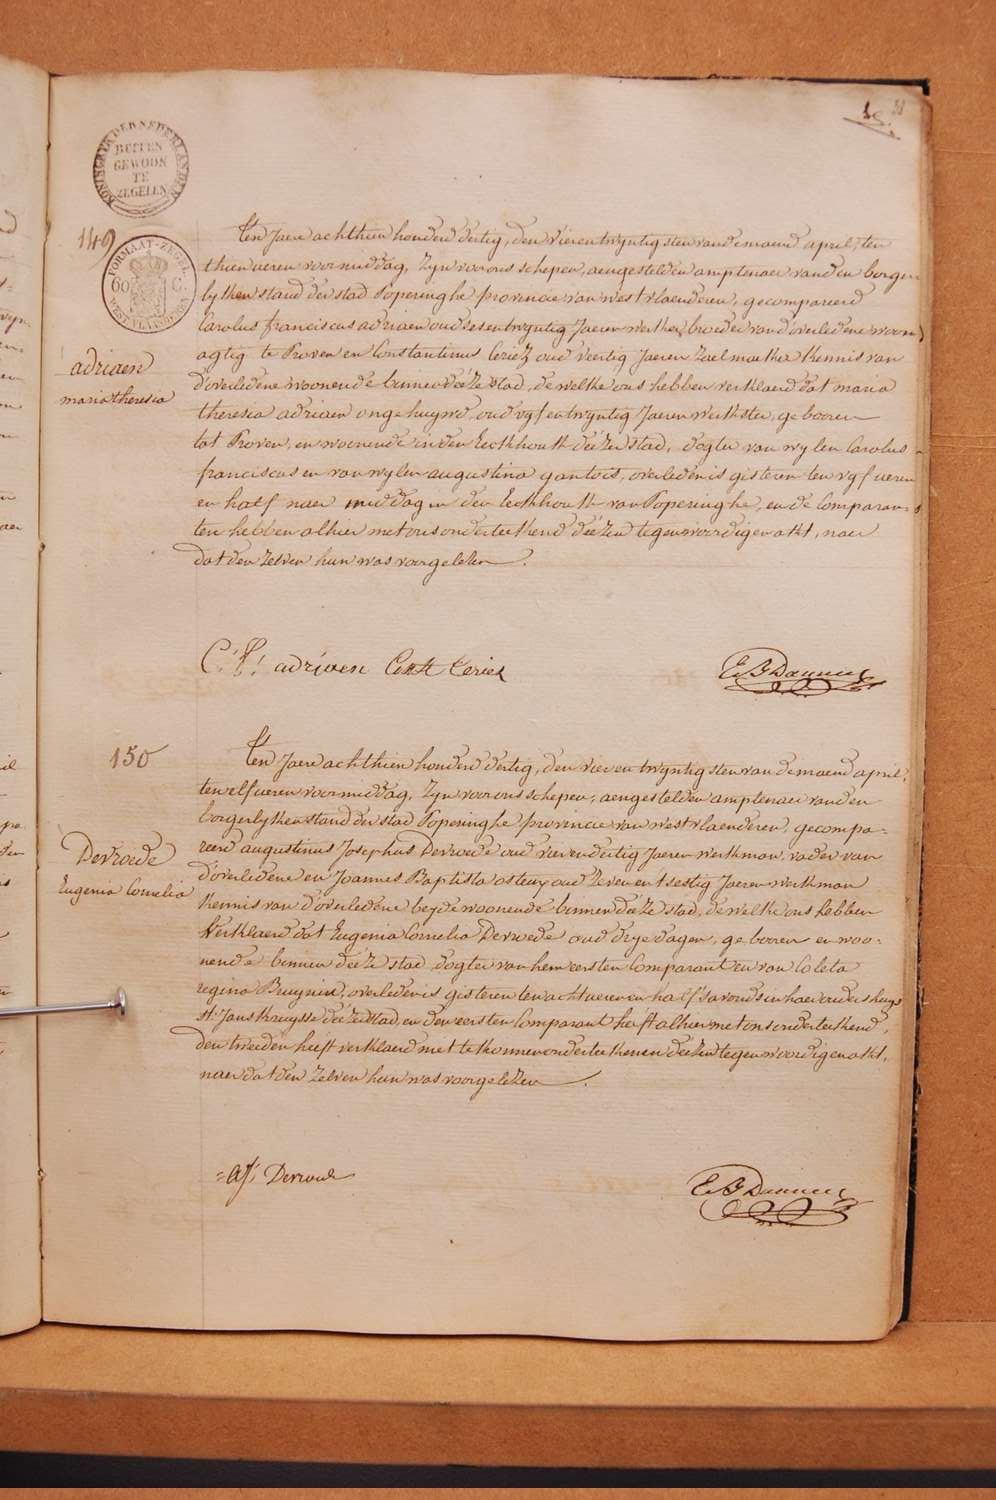 KONINGRYK DER NEDERLANDEN
BUITEN
GEWOON
TE
ZEGELEN
149
FORMAAT-ZEGEL
60 C.
WEST VLAANDEREN
adriaen
maria theresia
Ten Jaere achthien honderd dertig, den vierentwyntigsten van de maend april, ten
thien ueren voormiddag, zyn voor ons schepen, aengestelden amptenaer van den borger-
lyken stand der stad Poperinghe provincie van westvlaenderen, gecompareerd
Carolus franciscus adriaen oud sesentwyntig Jaeren werkm, broeder van d'overledene woon
agtig te Proven en Constantinus Ceriez oud veertig Jaeren Zaelmaeker kennis van
d'overledene woonende binnen deéze stad, de welke ons hebben verklaerd dat maria
theresia adriaen ongehuywd, oud vyfentwyntig Jaeren werkster, gebooren
tot Proven, en woonende in den Eeckhoutk deézer stad, dogter van wylen Carolus
franciscus en van wylen augustina gantois, overleden is gisteren ten vyf ueren
en half naer middag in den Eeckhoutk van Poperinghe, en de Comparan-
ten hebben alhier met ons onderteekend deézen tegenwoordigen akt, naer
dat den zelven hun was voorgelezen.
C: F: adriaen Const Ceriez
150
Devroede
Eugenia Cornelia
Ten Jaere achthien honderd dertig, den vierentwyntigsten van de maend april,
ten elf ueren voormiddag, zyn voor ons schepen, aengestelden amptenaer van den
borgerlyken stand der stad Poperinghe provincie van westvlaenderen, gecompa-
reerd augustinus Josephus Devroede oud vierendertig Jaeren werkman, vader van
d'overledene en Joannes Baptista osteux oud zevenentsestig Jaeren werkman
kennis van d'overledene beyde woonende binnen deéze stad, de welke ons hebben
verklaerd dat Eugenia Cornelia Devroede oud drye dagen, gebooren en woo-
nende binnen deéze stad, dogter van hem eersten Comparant en van Coleta
regina Bruynin, overleden is gisteren ten acht ueren en half s'avonds in haer ouders huys
st: Jans kruysse deéze stad, en den eersten Comparant heeft alhier met ons onderteekend,
den tweeden heeft verklaerd niet te konnen onderteekenen deézen tegenwoordigen akt,
naer dat den zelven hun was voorgelezen.
A J: Devroede